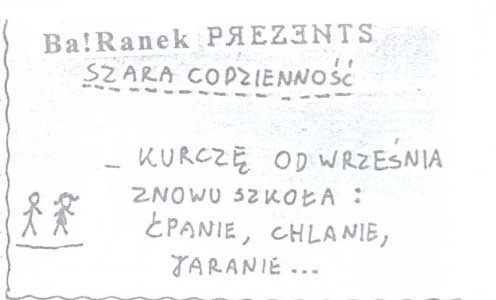 Ba!Ranek PЯEZƎNTS
SZARA CODZIENNOŚĆ
– KURCZĘ OD WRZEŚNIA
ZNOWU SZKOŁA :
ĆPANIE, CHLANIE,
JARANIE...